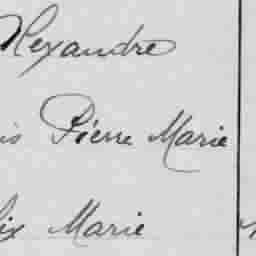 Alexandre
is Pierre Marie
lix Marie